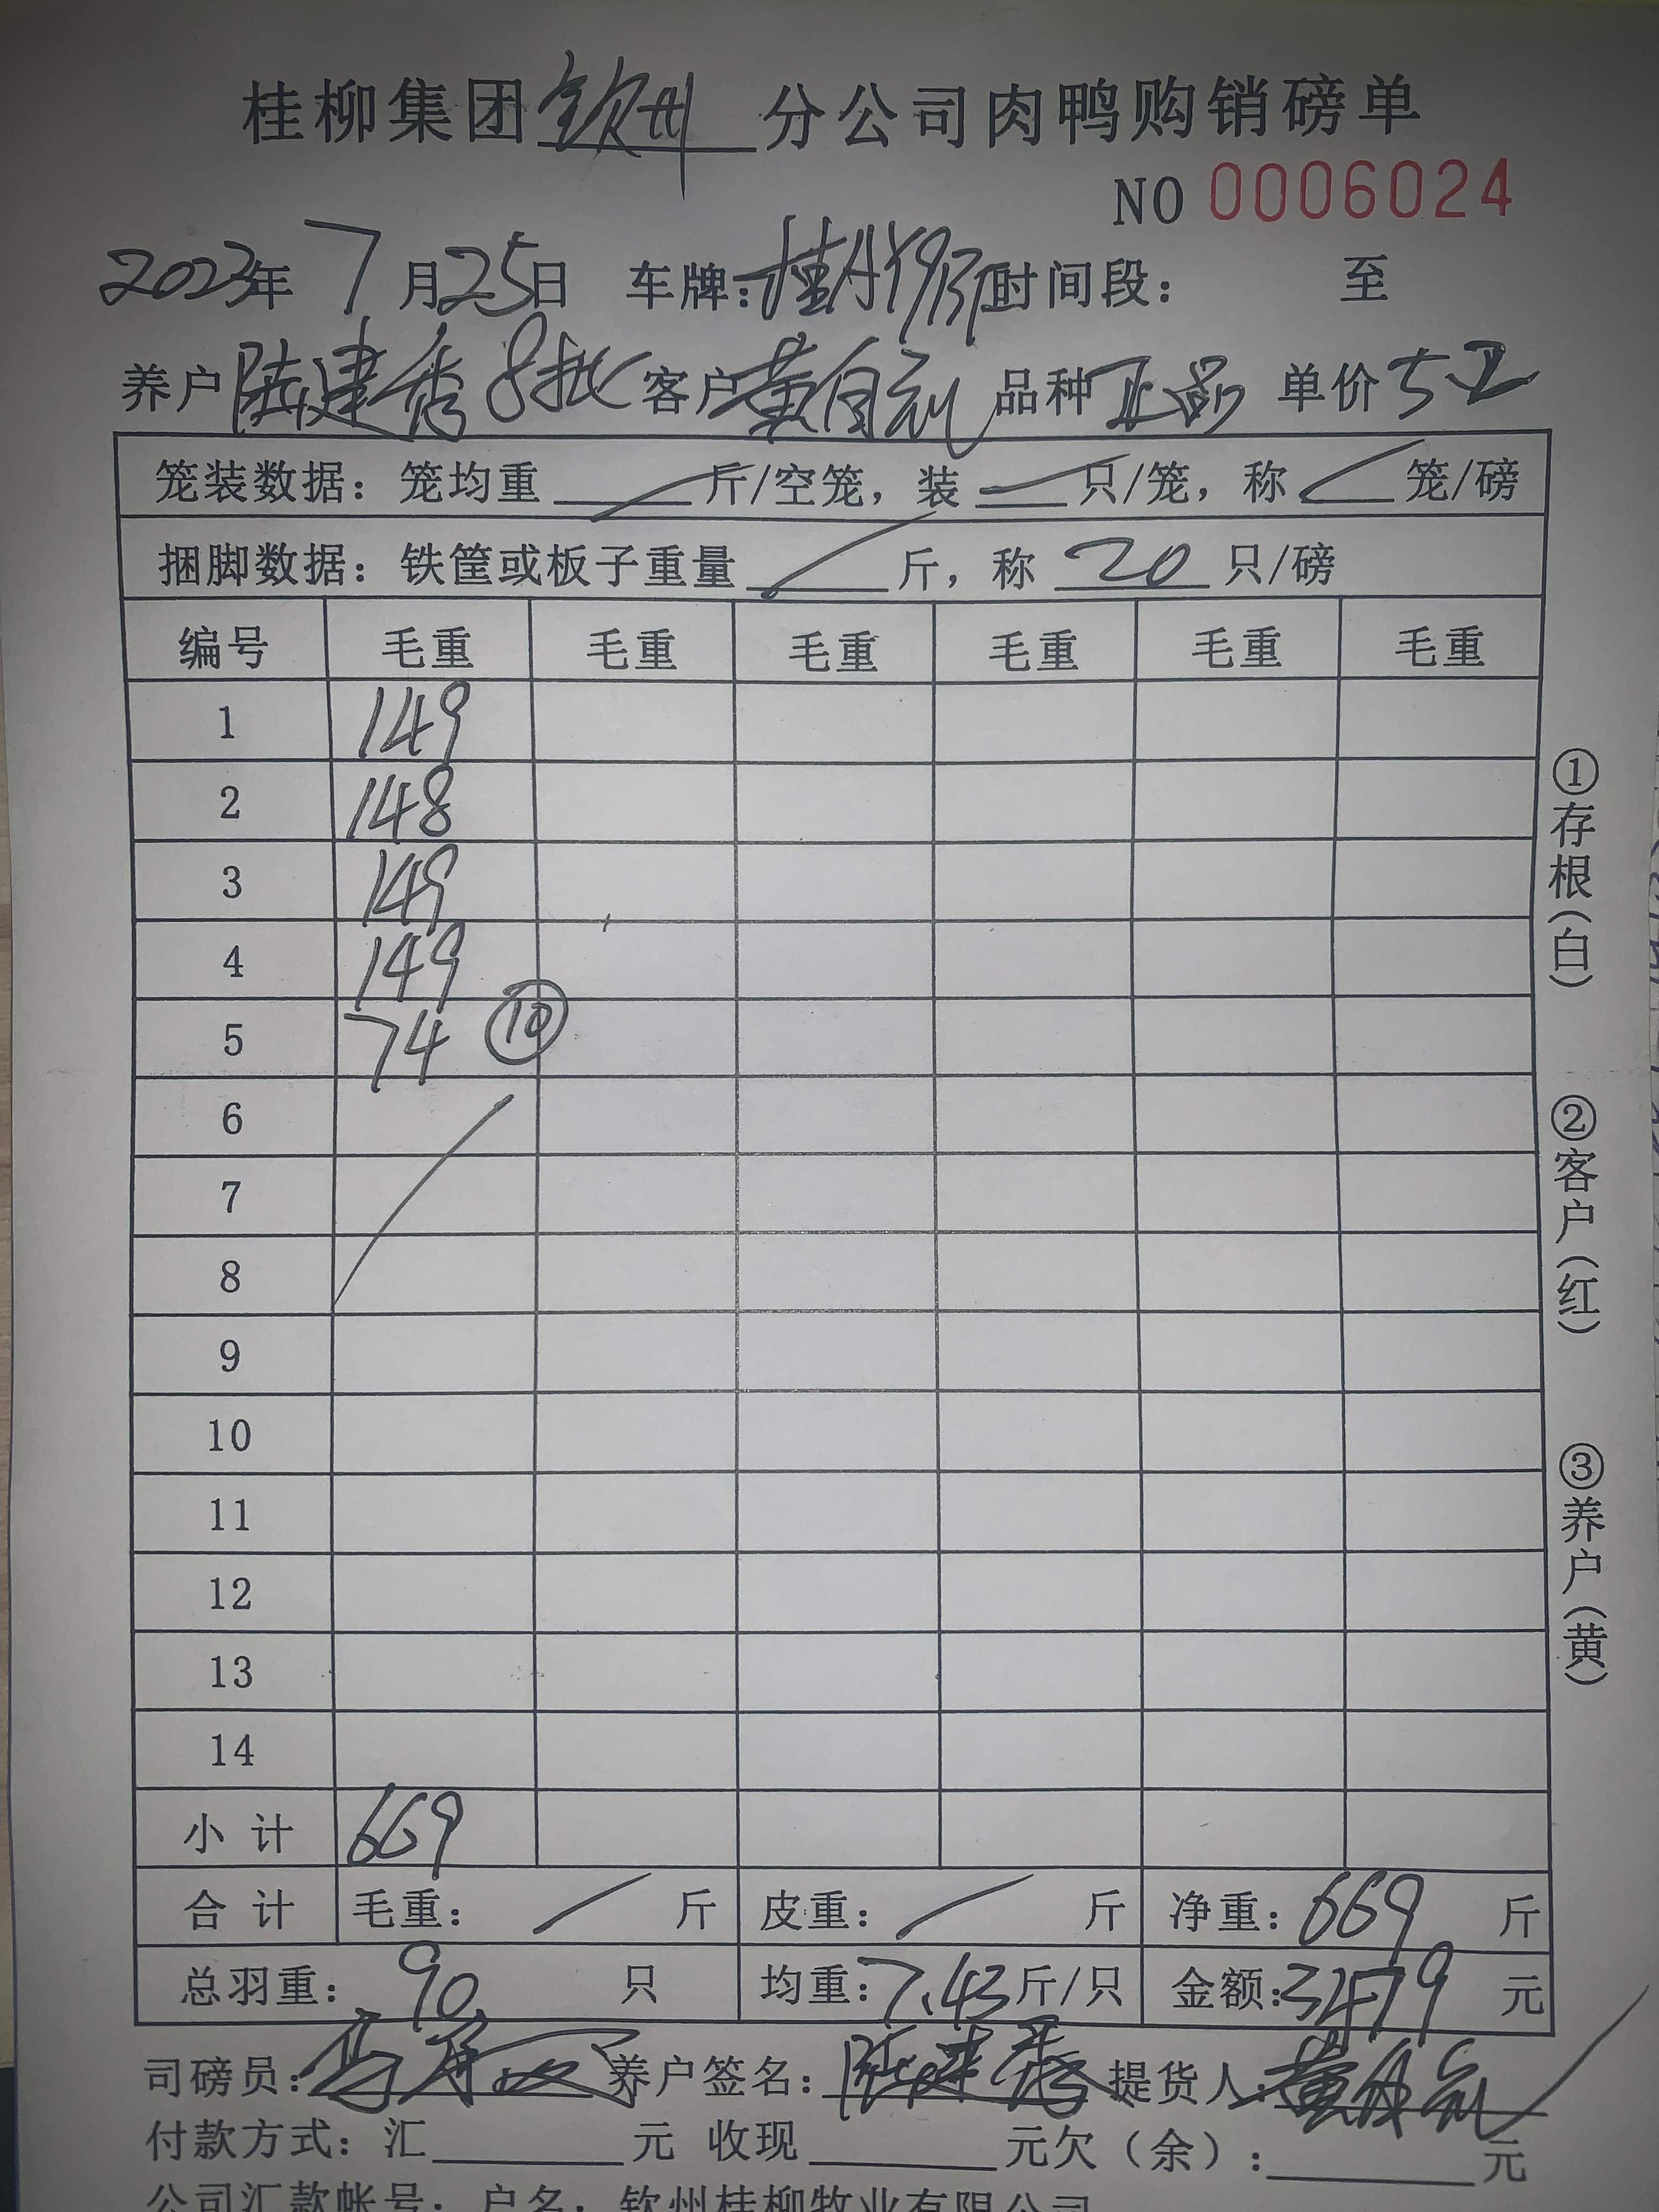 桂柳集团钦州分公司肉鸭购销磅单
NO 0006024
2023年7月25日 车牌:桂A 时间段: 至
养户陆建秀8批 客户黄自 品种正品 单价5.2
笼装数据: 笼均重 斤/空笼, 装 只/笼, 称 笼/磅
捆脚数据: 铁筐或板子重量 斤, 称 20 只/磅
编号 毛重 毛重 毛重 毛重 毛重 毛重
1 149
2 148
3 149
4 149
5 74 ⑩
6
7
8
9
10
11
12
13
14
小计 669
合计 毛重: 斤 皮重: 斤 净重: 669 斤
总羽重: 90 只 均重: 7.43斤/只 金额:3479 元
司磅员: 养户签名: 陆建秀 提货人:黄自
付款方式: 汇 元 收现 元欠(余): 元
公司汇款帐号: 户名: 钦州桂柳牧业有限公司
①存根(白)
②客户(红)
③养户(黄)